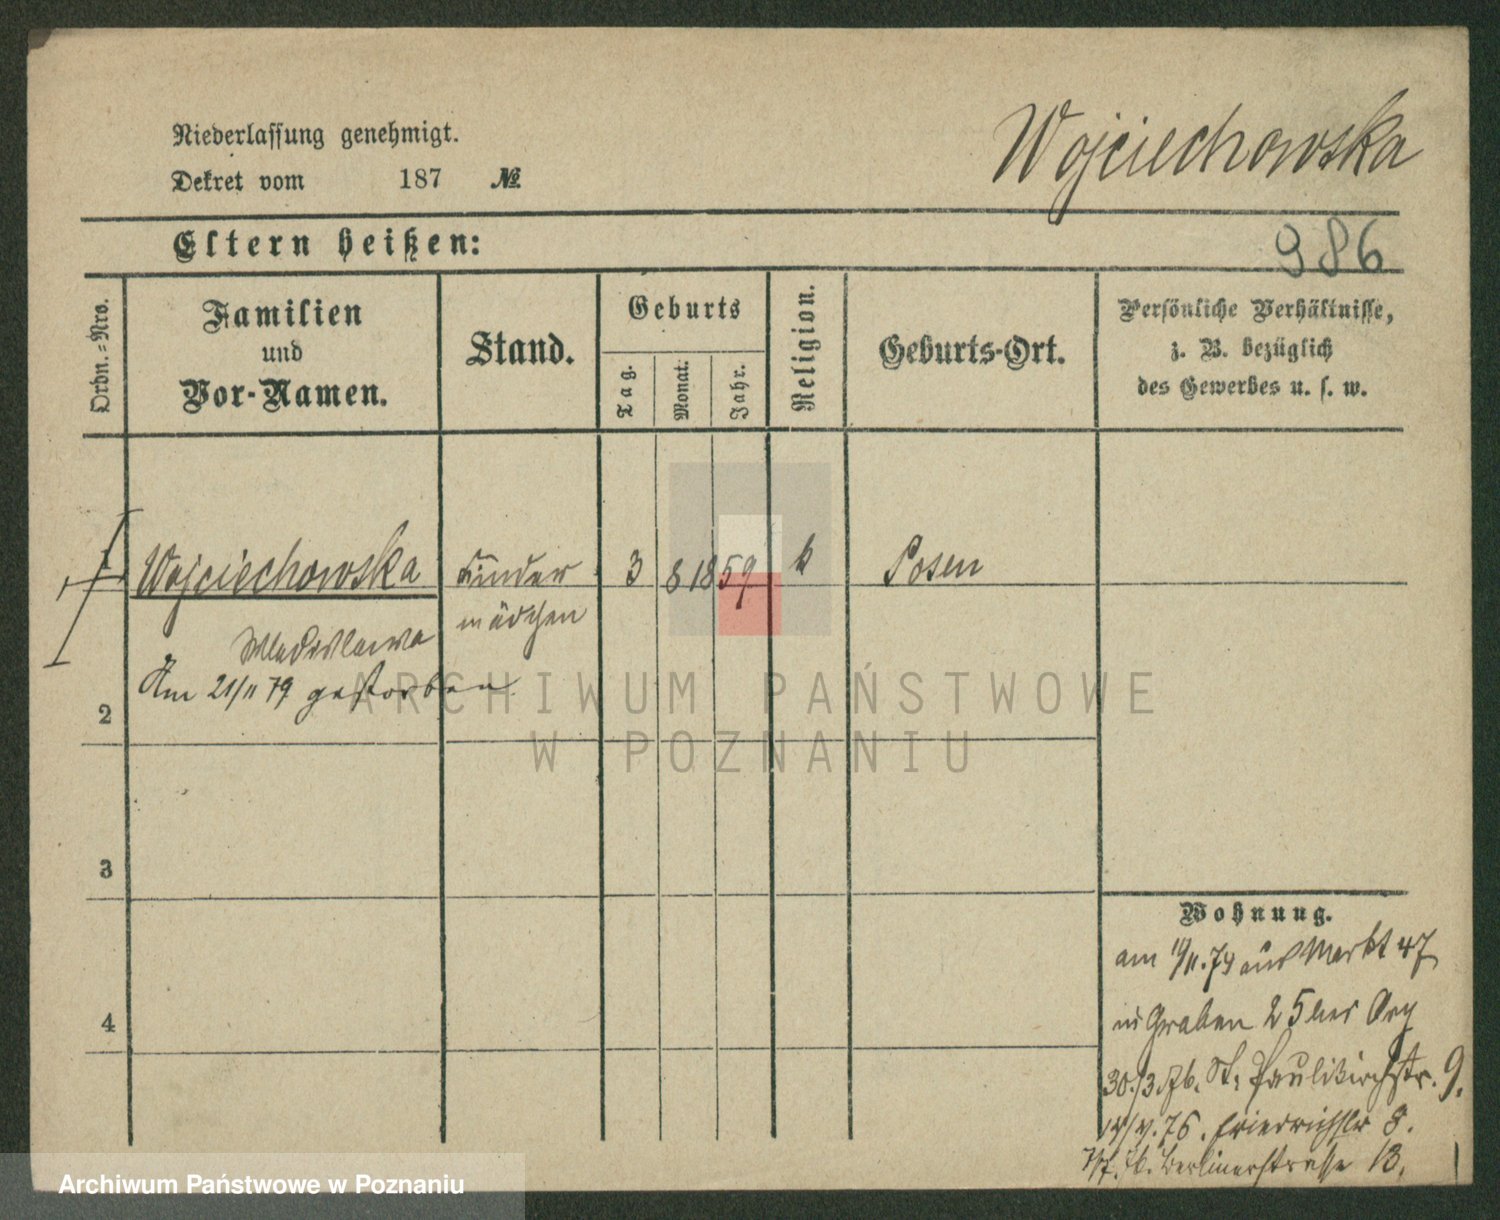 Niederlassung genehmigt.
Dekret vom 187 №
Wojciechowska
Eltern heißen:
986
Ordn.-Nro.
Familien
und
Vor-Namen.
Stand.
Geburts
Tag.
Monat.
Jahr.
Religion.
Geburts-Ort.
Persönliche Verhältnisse,
z. B. bezüglich
des Gewerbes u. s. w.
1
Wojciechowska
Kinder
mädchen
3 8 1859
k
Posen
Wladislawa
Am 21/11 79 gestorben
2
3
4
Wohnung.
am 11/11.74 aus Markt 47
in Graben 25 bei
30./3.76. St. Paulikirchstr. 9.
76. Friedrichstr 8.
76. Berlinerstrasse 13.
ARCHIWUM PAŃSTWOWE
W POZNANIU
Archiwum Państwowe w Poznaniu